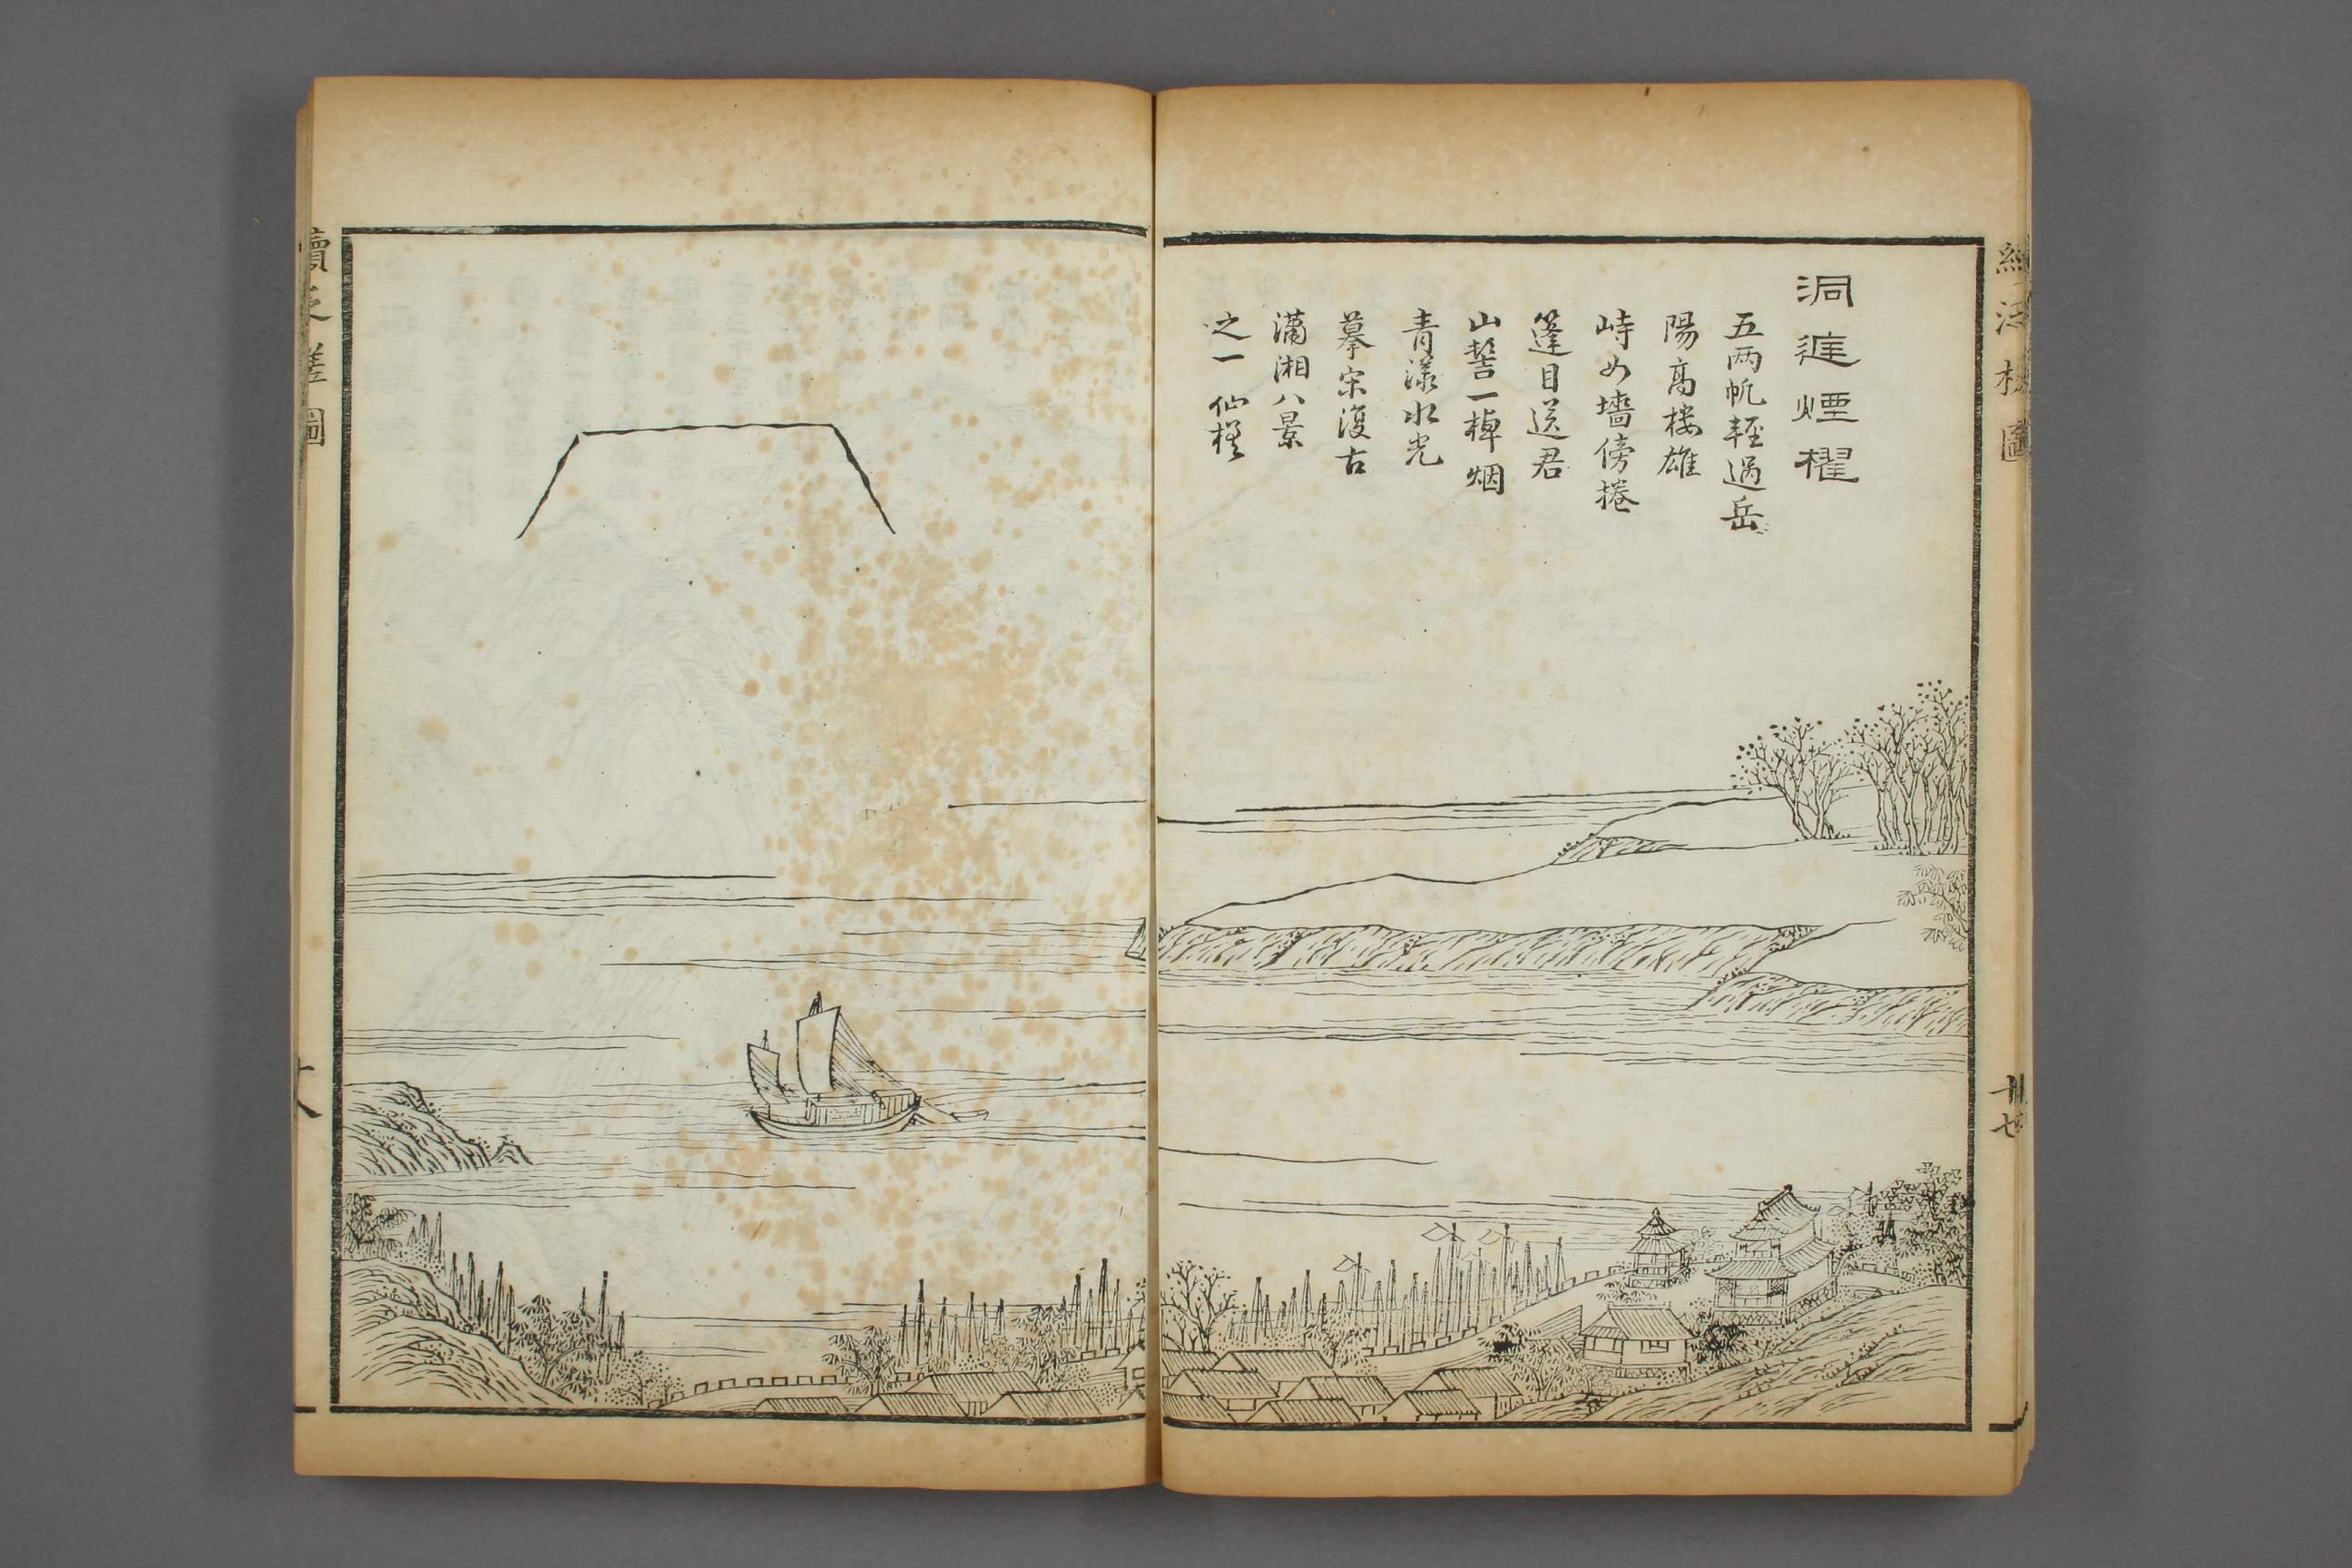 洞庭煙櫂
五两帆輕過岳
陽高樓雄
峙如墻傍捲
篷目送君
山髻一棹烟
青漾水光
摹宋復古
瀟湘八景
之一 仙槎
續泛槎圖
廿七
續泛槎圖